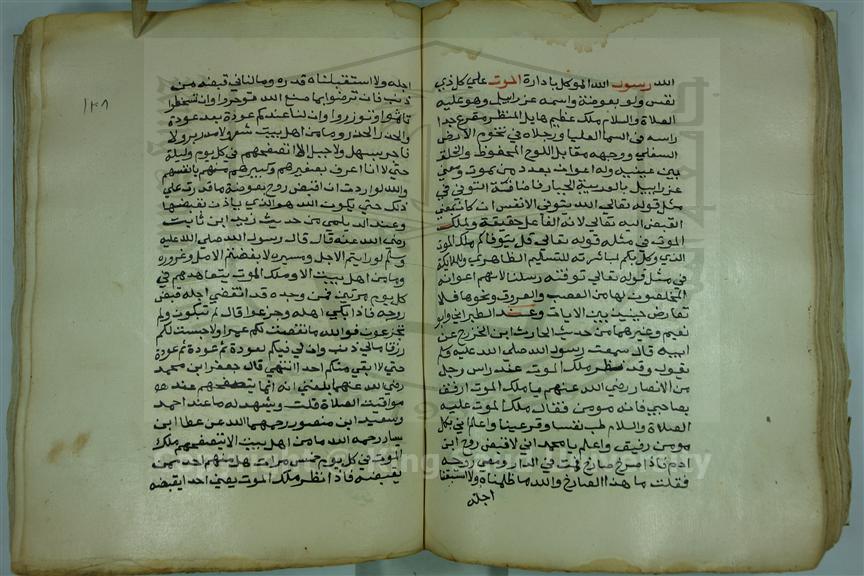 الله رسول الله الموكل بادارة الموت علي كل ذي
نفس ولو بعوضة واسمه عزراييل وهو عليه
الصلاة والسلام ملك عظيم هايل المنظر مفزع جدا
راسه في السما العليا ورجلاه في تخوم الارض
السفلي ووجهه مقابل اللوح المحفوظ والخلق
بين عينيه وله اعوان بعدد من يموت ومعني
عزراييل بالعربية الجبار فاضافة التوفي في
مثل قوله تعالي الله يتوفي الانفس
القبض اليه تعالي لانه الفاعل حقيقة ولملك
الموت في مثله قوله تعالي قل يتوفاكم ملك الموت
الذي وكل بكم لمباشرته له الظاهري وللملايكة
في مثل قوله تعالي توفته رسلنا لانهم اعوانه
من العصب والعروق ونحوها فلا
تعارض حينيذ بين الايات وعند الطبراني وابو
نعيم وغيرهما من حديث الحارث ابن الخزرج عن
ابيه قال سمعت رسول الله صلي الله عليه وسلم
يقول وقد نظر ملك الموت عند راس رجل
من الانصار رضي الله عنهم يا ملك الموت ارفق
بصاحبي فانه مومن فقال ملك الموت عليه
الصلاة والسلام طب نفسا وقر عينا واعلم اني بكل
مومن رفيق واعلم يا محمد اني لاقبض روح ابن
ادم فاذا صرخ صارخ قمت في الدار ومعي روحه
فقلت ما هذا الصارخ والله ما ظلمناه ولا استبقنا
اجله
١٢٨
اجله ولا استقبلناه قدره وما لنا في قبضه من
ذنب فان ترضوا بما صنع الله توجروا وان تسخطوا
تاثموا وتوزروا وان لنا عندكم عودة بعد عودة
والحذر الحذر وما من اهل بيت شعر ولا مدر بر ولا
فاجر سهل ولا جبل الا اتصفحهم في كل يوم وليلة
حتي لانا اعرف بصغيرهم وكبيرهم منهم بانفسهم
والله لو اردت ان اقبض روح بعوضة ما قدرت علي
ذلك حتي يكون الله هو الذي ياذن بقبضها
وعند الديلمي من حديث زيد ابن ثابت
رضي الله عنه قال قال رسول الله صلي الله عليه
وسلم لو رايتم الاجل ومسيره لابغضتم الامل وغروره
وما من اهل بيت الا وملك الموت يتعاهدهم في
كل يوم مرتين فمن وجده قد انقضي اجله قبض
روحه فاذا بكي اهله وجزعوا قال لم تبكون ولم
تجزعون فوالله ما نقصت لكم عمرا ولا حبست لكم
رزقا مالي ذنب وان لي فيكم لعودة ثم عودة ثم عودة
حتي لا ابقي منكم احدا انتهي قال جعفر ابن محمد
رضي الله عنهما بلغني انه انما يتصفحهم عند
مواقيت الصلاة قلت ويشهد له ما عند احمد
وسعيد ابن منصور رحمهما الله عن عطا ابن
يسار رحمه الله ما من اهل بيت الا يتصفحهم ملك
الموت في كل يوم خمس مرات هل منهم احد من
يقبضه فاذا نظر ملك الموت يعني احدا يقبضه